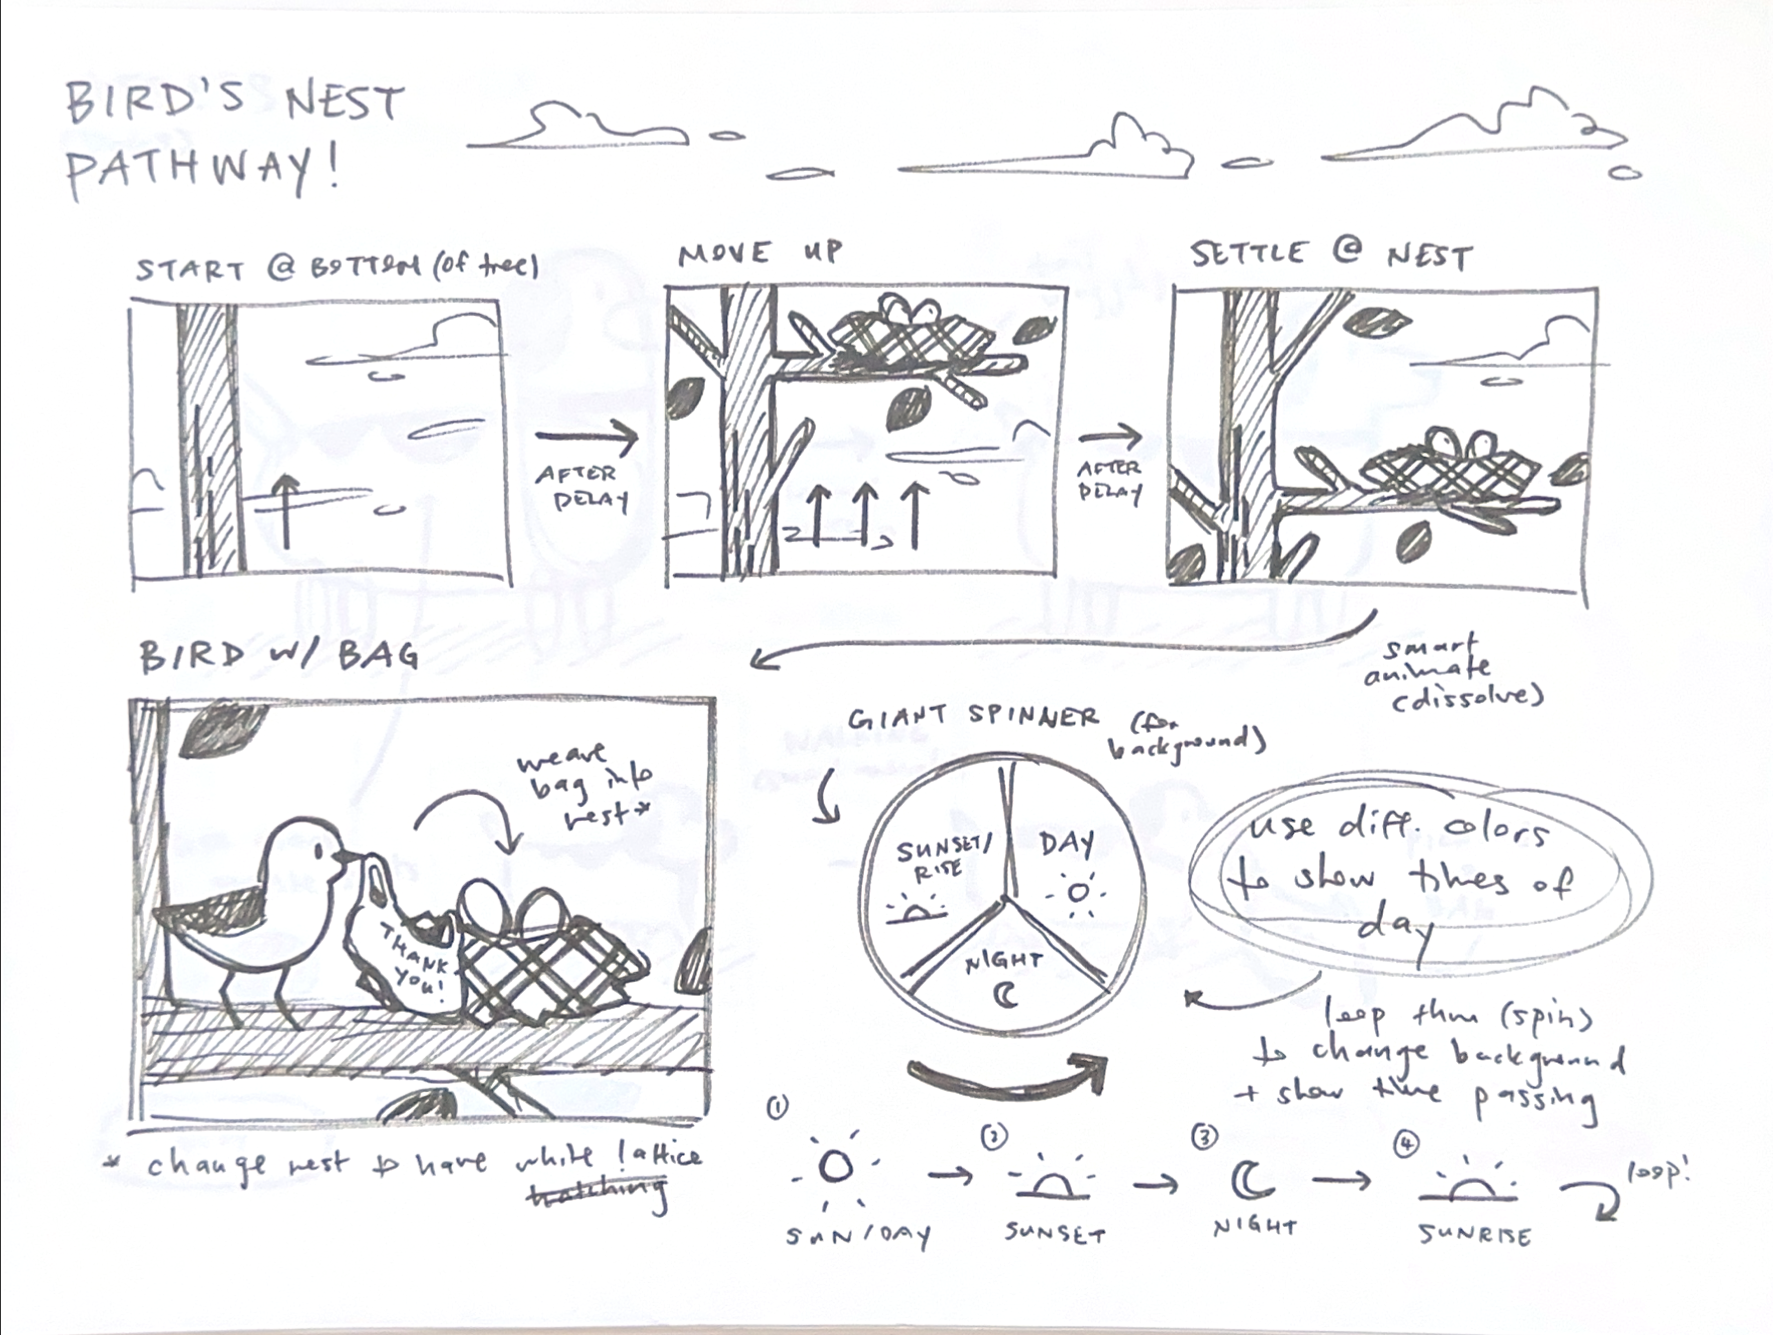 BIRD'S NEST
PATHWAY!
START @ BOTTOM (of tree)
MOVE UP
SETTLE @ NEST
AFTER
DELAY
AFTER
DELAY
smart
animate
(dissolve)
BIRD W/ BAG
weave
bag into
nest*
THANK
YOU!
* change nest to have white lattice
hatching
GIANT SPINNER (for
background)
SUNSET/
RISE
DAY
NIGHT
use diff. colors
to show times of
day
loop thru (spin)
to change background
+ show time passing
① ② ③ ④
SUN/DAY
SUNSET
NIGHT
SUNRISE
loop!